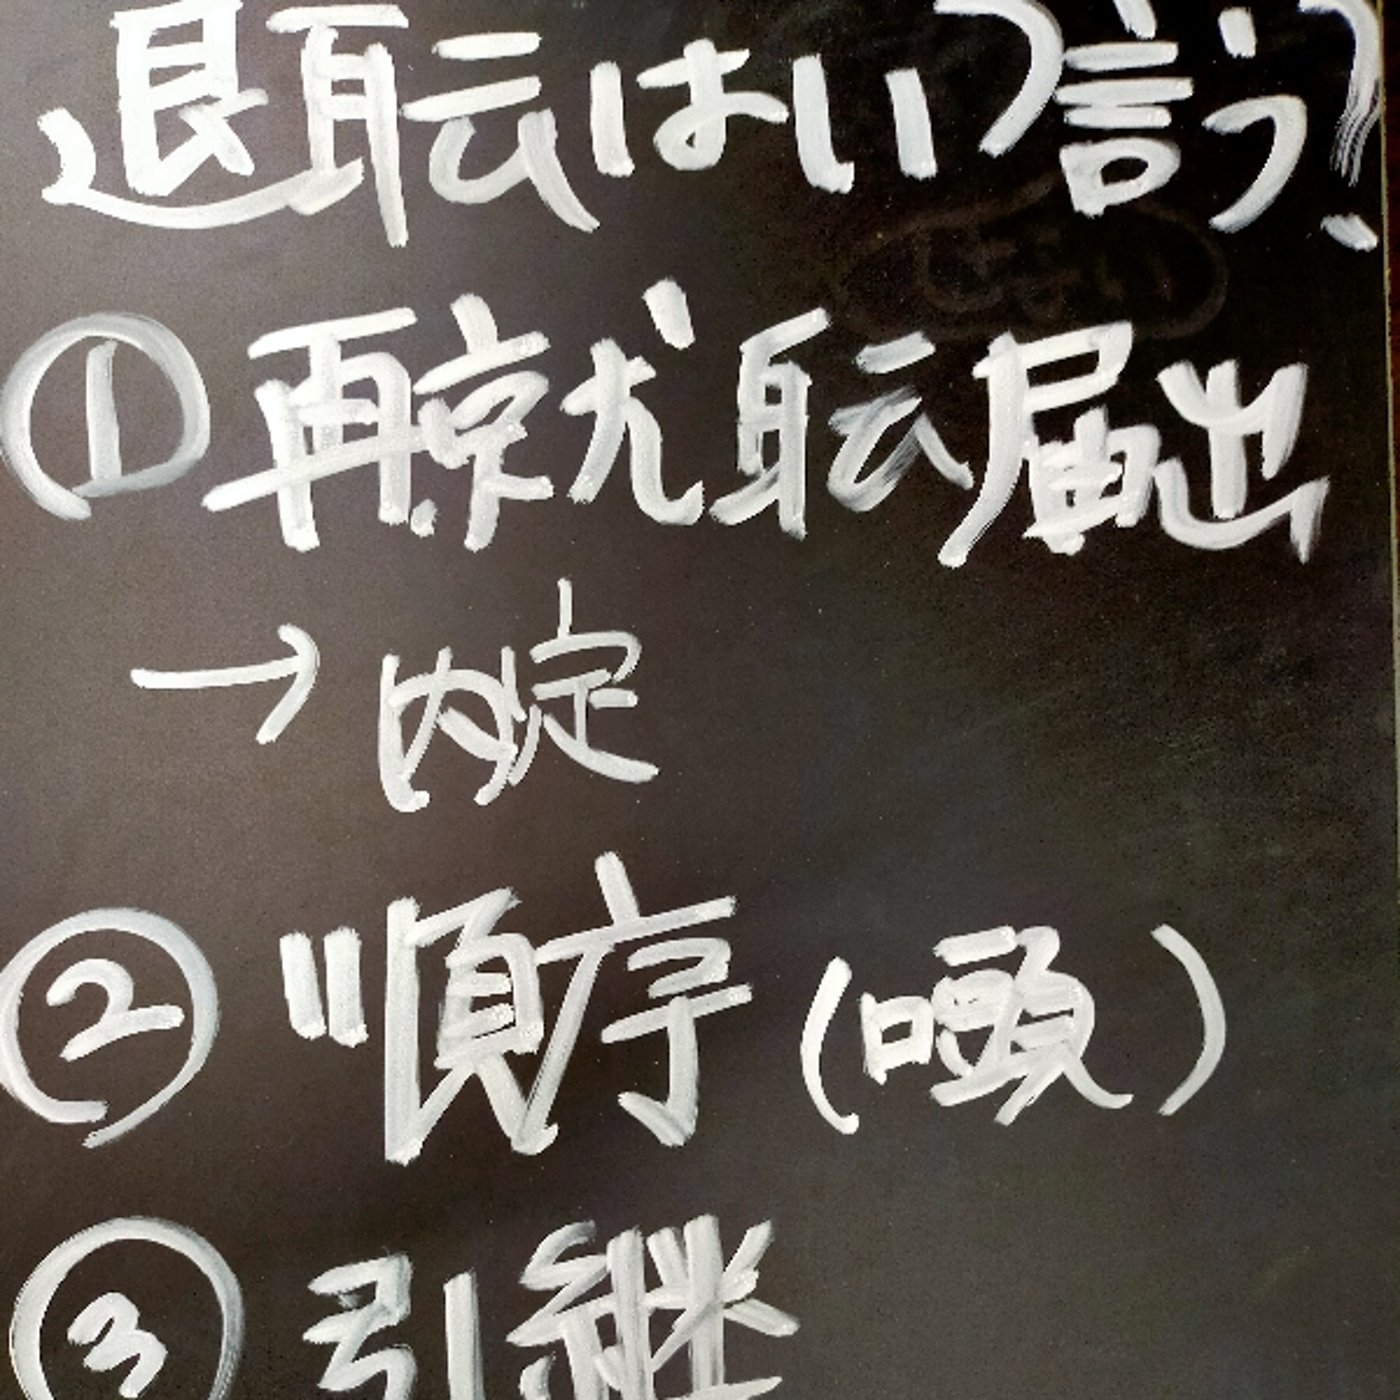 退耺はいつ言う?
① 再就耺届出
→ 内定
② 順序(口頭)
③ 引継